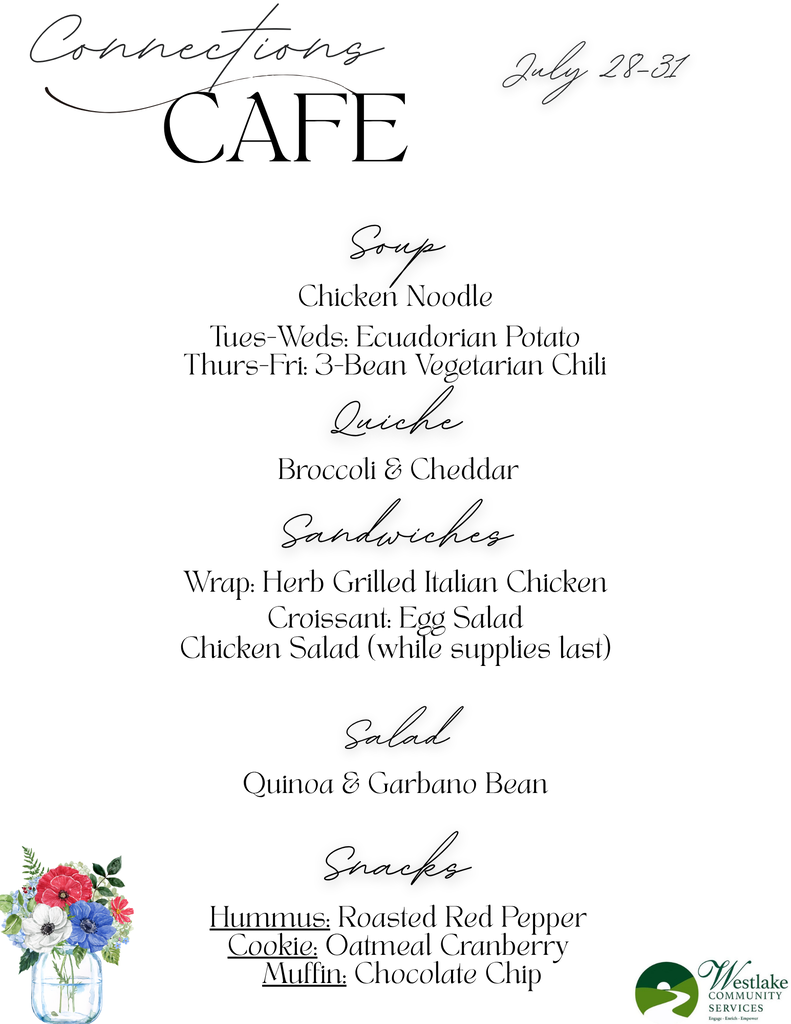 Connections
CAFE
July 28-31
Soup
Chicken Noodle
Tues-Weds: Ecuadorian Potato
Thurs-Fri: 3-Bean Vegetarian Chili
Quiche
Broccoli & Cheddar
Sandwiches
Wrap: Herb Grilled Italian Chicken
Croissant: Egg Salad
Chicken Salad (while supplies last)
Salad
Quinoa & Garbano Bean
Snacks
Hummus: Roasted Red Pepper
Cookie: Oatmeal Cranberry
Muffin: Chocolate Chip
Westlake
COMMUNITY
SERVICES
Engage · Enrich · Empower